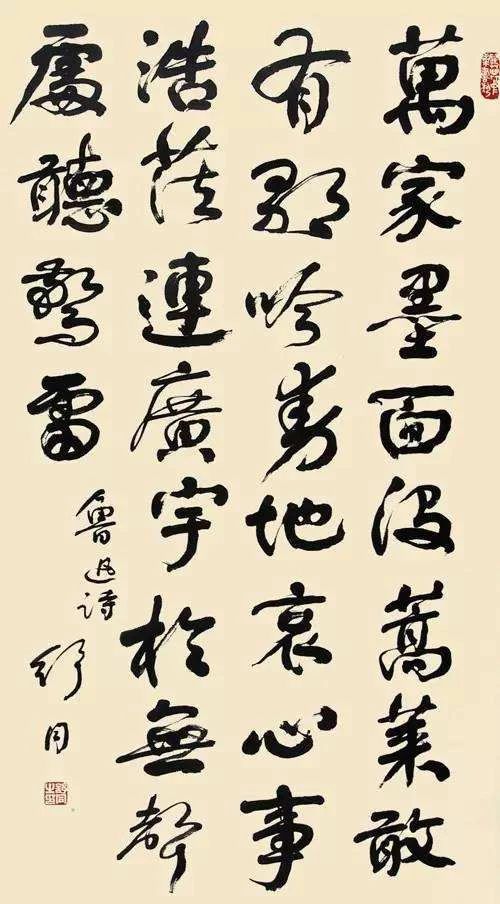 萬家墨面沒蒿萊敢
有歌吟動地哀心事
浩茫連廣宇於無聲
處聽驚雷
魯迅詩
舒同